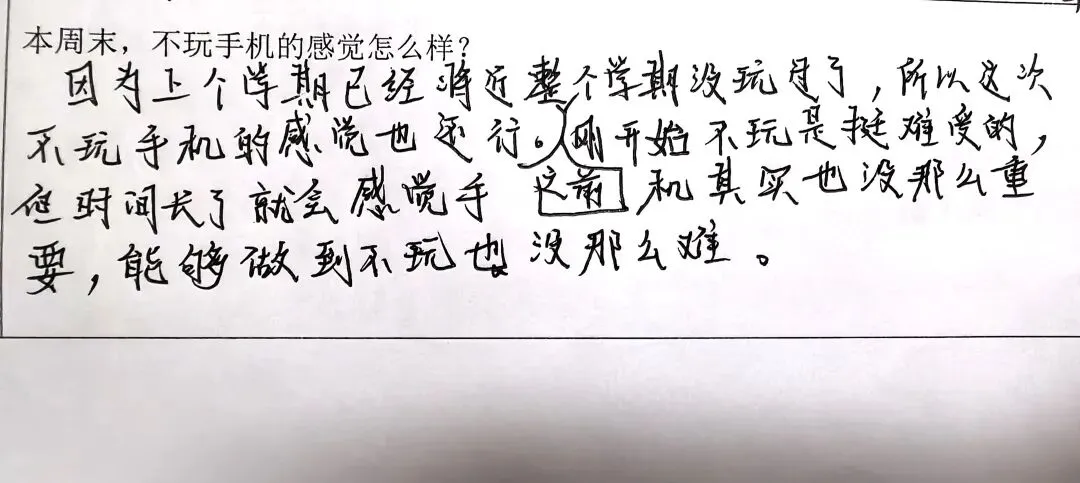 本周末，不玩手机的感觉怎么样？
因为上个学期已经将近整个学期没玩过了，所以这次
不玩手机的感觉也还行。刚开始不玩是挺难受的，
但时间长了就会感觉手 这前 机其实也没那么重
要，能够做到不玩也没那么难。